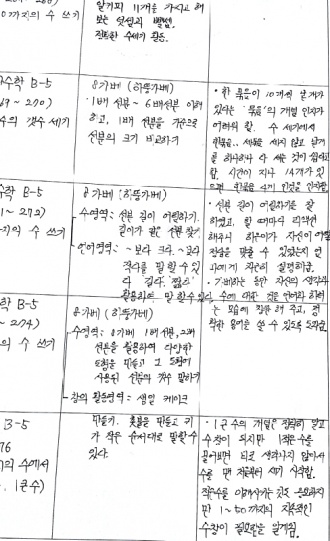 0까지의 수 쓰기
알거리 11개를 가지고 해
보는 덧셈과 뺄셈,
수세기 활동.
수학 B-5
69~270)
수의 갯수 세기
8가베 (하뚱가베)
·1배 선분 ~ 6배선분 이해
하고, 1배 선분을 기준으로
선분의 크기 비교하기
·한 묶음이 10개씩 알거가
있다는 '묶음'의 개념 인지가
어려워 함. 수 세기에서
한묶음, 세묶음 세지 않고 낱개
로 하나하나 다 세는 것이 습관
됨. 시간이 지나 14개가 있
으면 한묶음 4개 인것을 인지함.
수학 B-5
1~272)
까지의 수 쓰기
8가베 (하뚱가베)
·수영역: 선분 길이 어림하기.
길이가 같은 선분 찾기.
·언어영역: ~보다 크다. ~보다
작다를 말할 수 있
다. 길다. 짧다
활용하여 말 할 수 있다.
·선분 길이 어림하기를 잘
하였고, 할 때마다 리액션
해주니 하윤이가 자신이 어떻게
정답을 맞출 수 있었는지 언
자에게 자신의 설명하곤.
·가베하는 동안 자신의 생각과
수에 대한 것을 언어화 하려
는 모습에 칭찬 해 주고, 정
확한 용어를 쓸 수 있도록 도왔음.
수학 B-5
~274)
의 수 쓰기
8가베 (하뚱가베)
·수영역: 8가베 1배선분, 2배
선분을 활용하여 다양한
도형을 만들고 그 도형에
사용된 선분의 갯수 말하기
·창의 활동영역: 생일 케이크
만들기. 촛불을 만들고 키
가 작은 순서대로 말할 수
있다.
B-5
76
의 수에서
1큰수)
·1큰 수의 개념은 정확히 알고
수창이 되지만 1작은수를
물어보면 바로 생각나지 않아서
수를 맨 처음부터 세기 시작함.
작은수를 이야기하는 것도 중요하지
만 1~50까지의 지속적인
수창이 필요함을 알게됨.